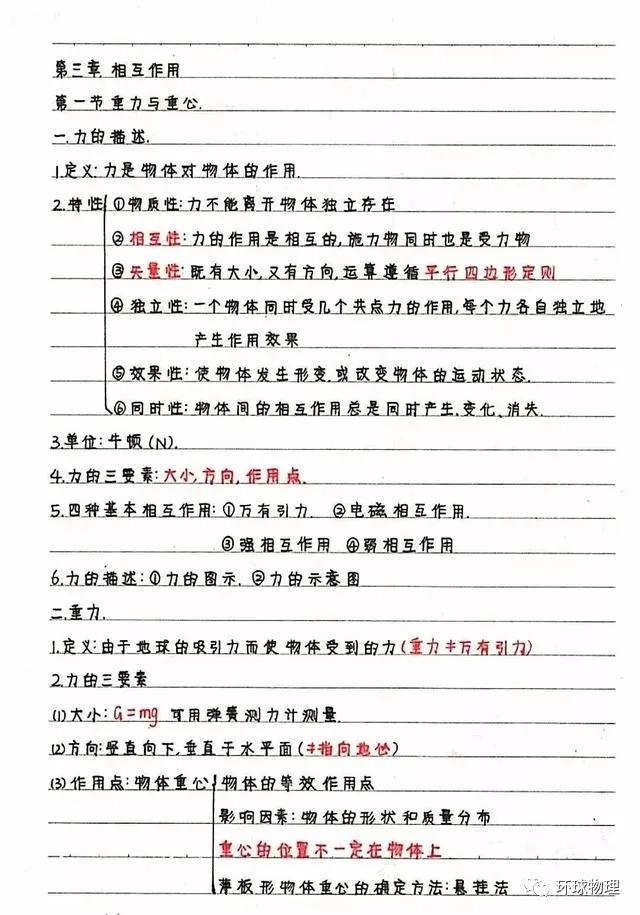 第三章 相互作用
第一节 重力与重心.
一.力的描述.
1.定义:力是物体对物体的作用.
2.特性 ①物质性:力不能离开物体独立存在
②相互性:力的作用是相互的,施力物同时也是受力物
③矢量性:既有大小,又有方向,运算遵循平行四边形定则
④独立性:一个物体同时受几个共点力的作用,每个力各自独立地
产生作用效果
⑤效果性:使物体发生形变,或改变物体的运动状态.
⑥同时性:物体间的相互作用总是同时产生.变化、消失.
3.单位:牛顿(N).
4.力的三要素:大小,方向,作用点.
5.四种基本相互作用:①万有引力. ②电磁相互作用.
③强相互作用 ④弱相互作用
6.力的描述:①力的图示. ②力的示意图
二.重力.
1.定义:由于地球的吸引力而使物体受到的力(重力≠万有引力)
2.力的三要素
(1)大小:G=mg 可用弹簧测力计测量.
(2)方向:竖直向下,垂直于水平面(≠指向地心)
(3)作用点:物体重心 物体的等效作用点
影响因素:物体的形状和质量分布
重心的位置不一定在物体上
薄板形物体重心的确定方法:悬挂法
环球物理